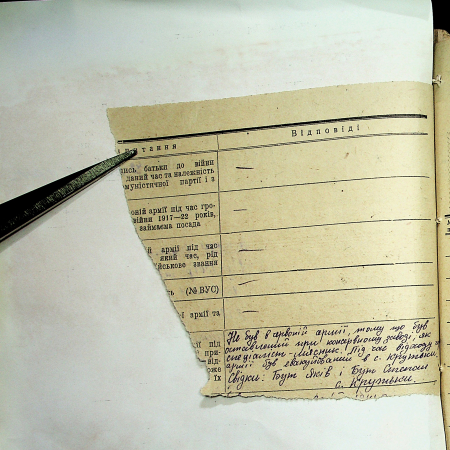 итання
Відповіді
ись батьки до війни
даний час та належність
муністичної партії і з
—
вій армії під час гро-
війни 1917—22 років,
займаєма посада
—
й армії під час
який час, рід
йськове звання
—
ь (№ ВУС)
—
ї армії та
—
ї під
при-
від-
оже
їх
Не був в червоній армії, тому що був
оставлений при консервному заводі, як
спеціаліст-мясник. Під час відходу ч.
армії був евакуйований в с. Крутьки.
Свідки: Бут Яків і Бут Степан
с. Крутьки.